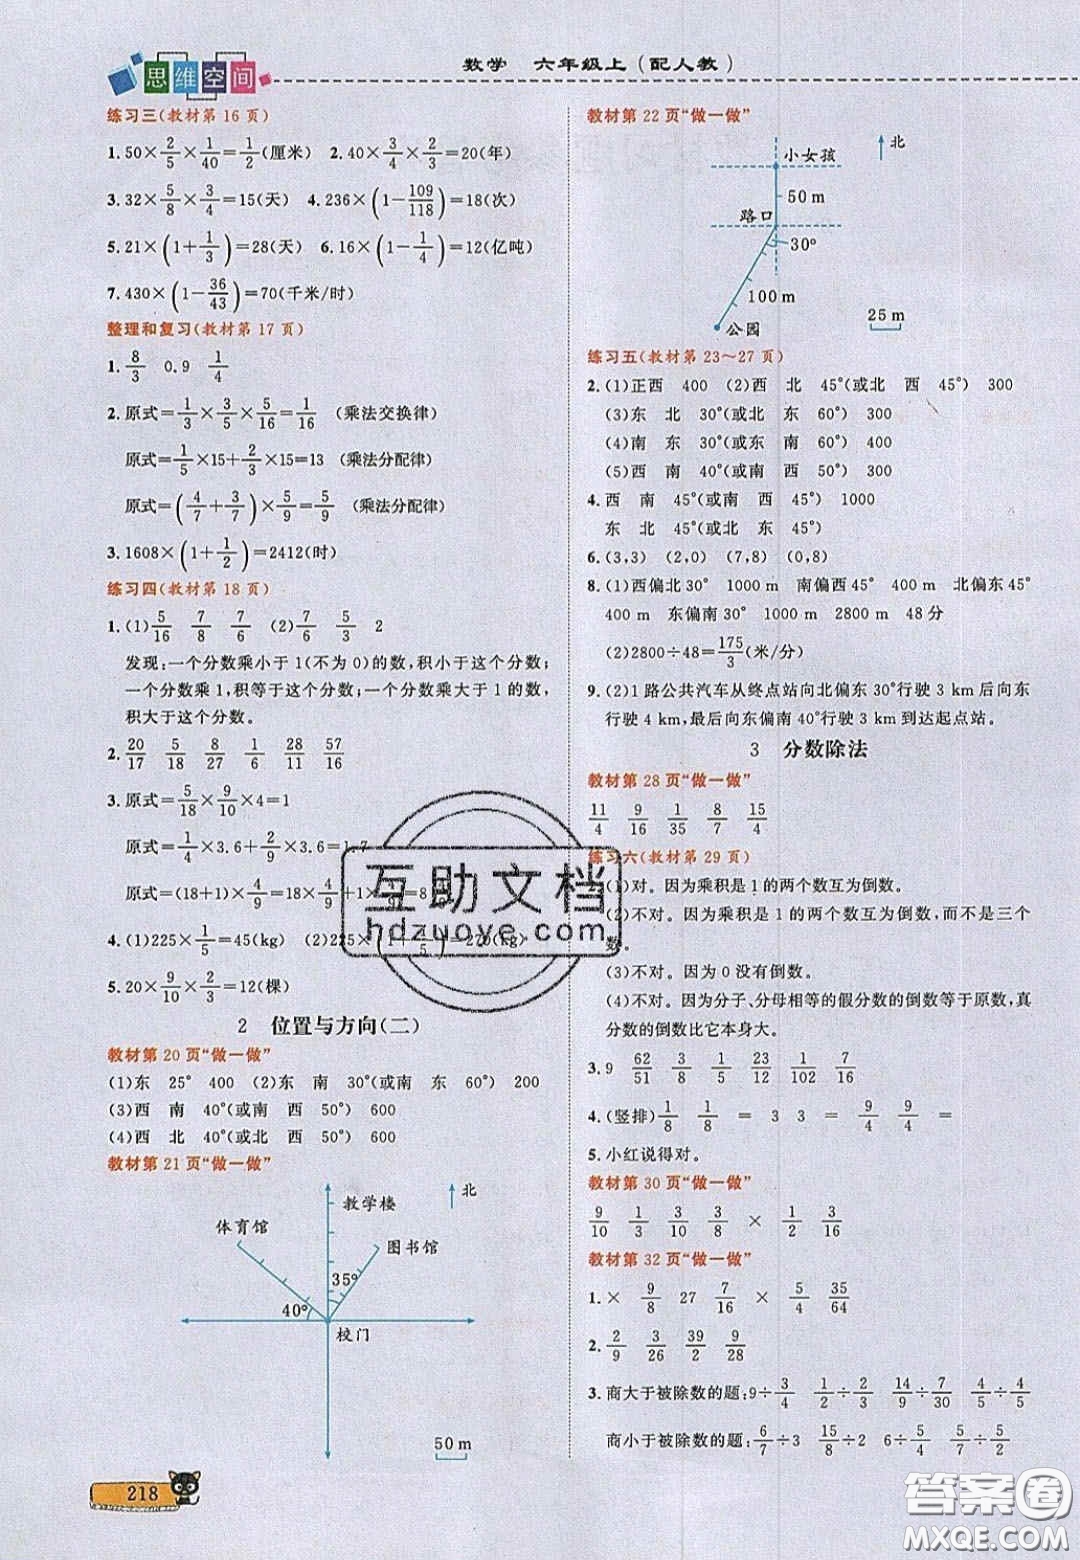 思维空间
数学 六年级上(配人教)
练习三(教材第16页)
1.50×2/5×1/40=1/2(厘米) 2.40×3/4×2/3=20(年)
3.32×5/8×3/4=15(天) 4.236×(1-109/118)=18(次)
5.21×(1+1/3)=28(天) 6.16×(1-1/4)=12(亿吨)
7.430×(1-36/43)=70(千米/时)
整理和复习(教材第17页)
1.8/3 0.9 1/4
2.原式=1/3×3/5×5/16=1/16 (乘法交换律)
原式=1/5×15+2/3×15=13 (乘法分配律)
原式=(4/7+3/7)×5/9=5/9 (乘法分配律)
3.1608×(1+1/2)=2412(时)
练习四(教材第18页)
1.(1)5/16 7/8 7/6 (2)7/6 5/3 2
发现:一个分数乘小于1(不为0)的数,积小于这个分数;
一个分数乘1,积等于这个分数;一个分数乘大于1的数,
积大于这个分数。
2.20/17 5/18 8/27 1/6 28/11 57/16
3.原式=5/18×9/10×4=1
原式=1/4×3.6+2/9×3.6=1.7
原式=(18+1)×4/9=18×4/9+1×4/9=8 4/9
4.(1)225×1/5=45(kg) (2)225×(1+1/5)=270(kg)
5.20×9/10×2/3=12(棵)
2 位置与方向(二)
教材第20页“做一做”
(1)东 25° 400 (2)东 南 30°(或南 东 60°) 200
(3)西 南 40°(或南 西 50°) 600
(4)西 北 40°(或北 西 50°) 600
教材第21页“做一做”
教学楼
北
体育馆
图书馆
35°
40°
校门
50 m
218
教材第22页“做一做”
北
小女孩
50 m
路口
30°
100 m
25 m
公园
练习五(教材第23~27页)
2.(1)正西 400 (2)西 北 45°(或北 西 45°) 300
(3)东 北 30°(或北 东 60°) 300
(4)南 东 30°(或东 南 60°) 400
(5)西 南 40°(或南 西 50°) 400
4.西 南 45°(或南 西 45°) 1000
东 北 45°(或北 东 45°)
6.(3,3) (2,0) (7,8) (0,8)
8.(1)西偏北30° 1000 m 南偏西45° 400 m 北偏东45°
400 m 东偏南30° 1000 m 2800 m 48分
(2)2800÷48=175/3(米/分)
9.(2)1路公共汽车从终点站向北偏东30°行驶3 km后向东
行驶4 km,最后向东偏南40°行驶3 km到达起点站。
3 分数除法
教材第28页“做一做”
11/4 9/16 1/35 8/7 15/4
练习六(教材第29页)
2.(1)对。因为乘积是1的两个数互为倒数。
(2)不对。因为乘积是1的两个数互为倒数,而不是三个
数。
(3)不对。因为0没有倒数。
(4)不对。因为分子、分母相等的假分数的倒数等于原数,真
分数的倒数比它本身大。
3.9 62/51 3/8 1/5 23/12 1/102 7/16
4.(竖排)1/8 1/8 = 3 3 = 9/4 9/4 =
5.小红说得对。
教材第30页“做一做”
9/10 1/3 3/10 3/8 × 1/2 3/16
教材第32页“做一做”
1.× 9/8 27 7/16 × 5/4 35/64
2.2/9 3/26 39/2 9/28
3.商大于被除数的题:9÷3/4 1/2÷2/3 14/9÷7/30 4/5÷4/5
商小于被除数的题:6/7÷3 15/8÷2 6÷5/4 5/7÷5/2
互助文档
hdzuoye.com
答案圈
MXQE.COM